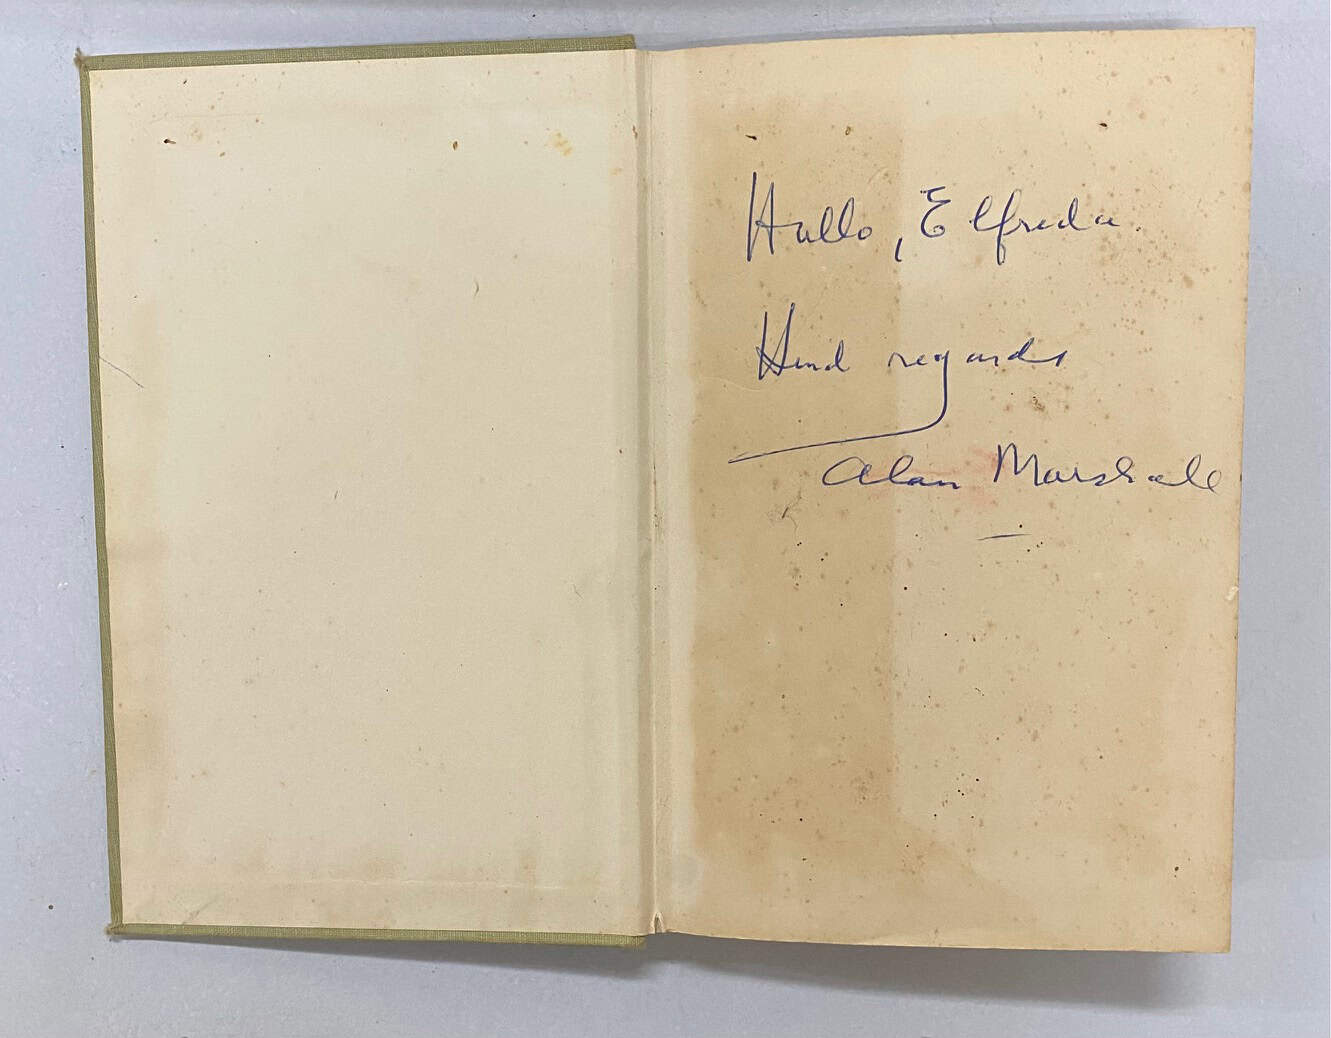 Hallo, Elfreda
Kind regards
Alan Marshall